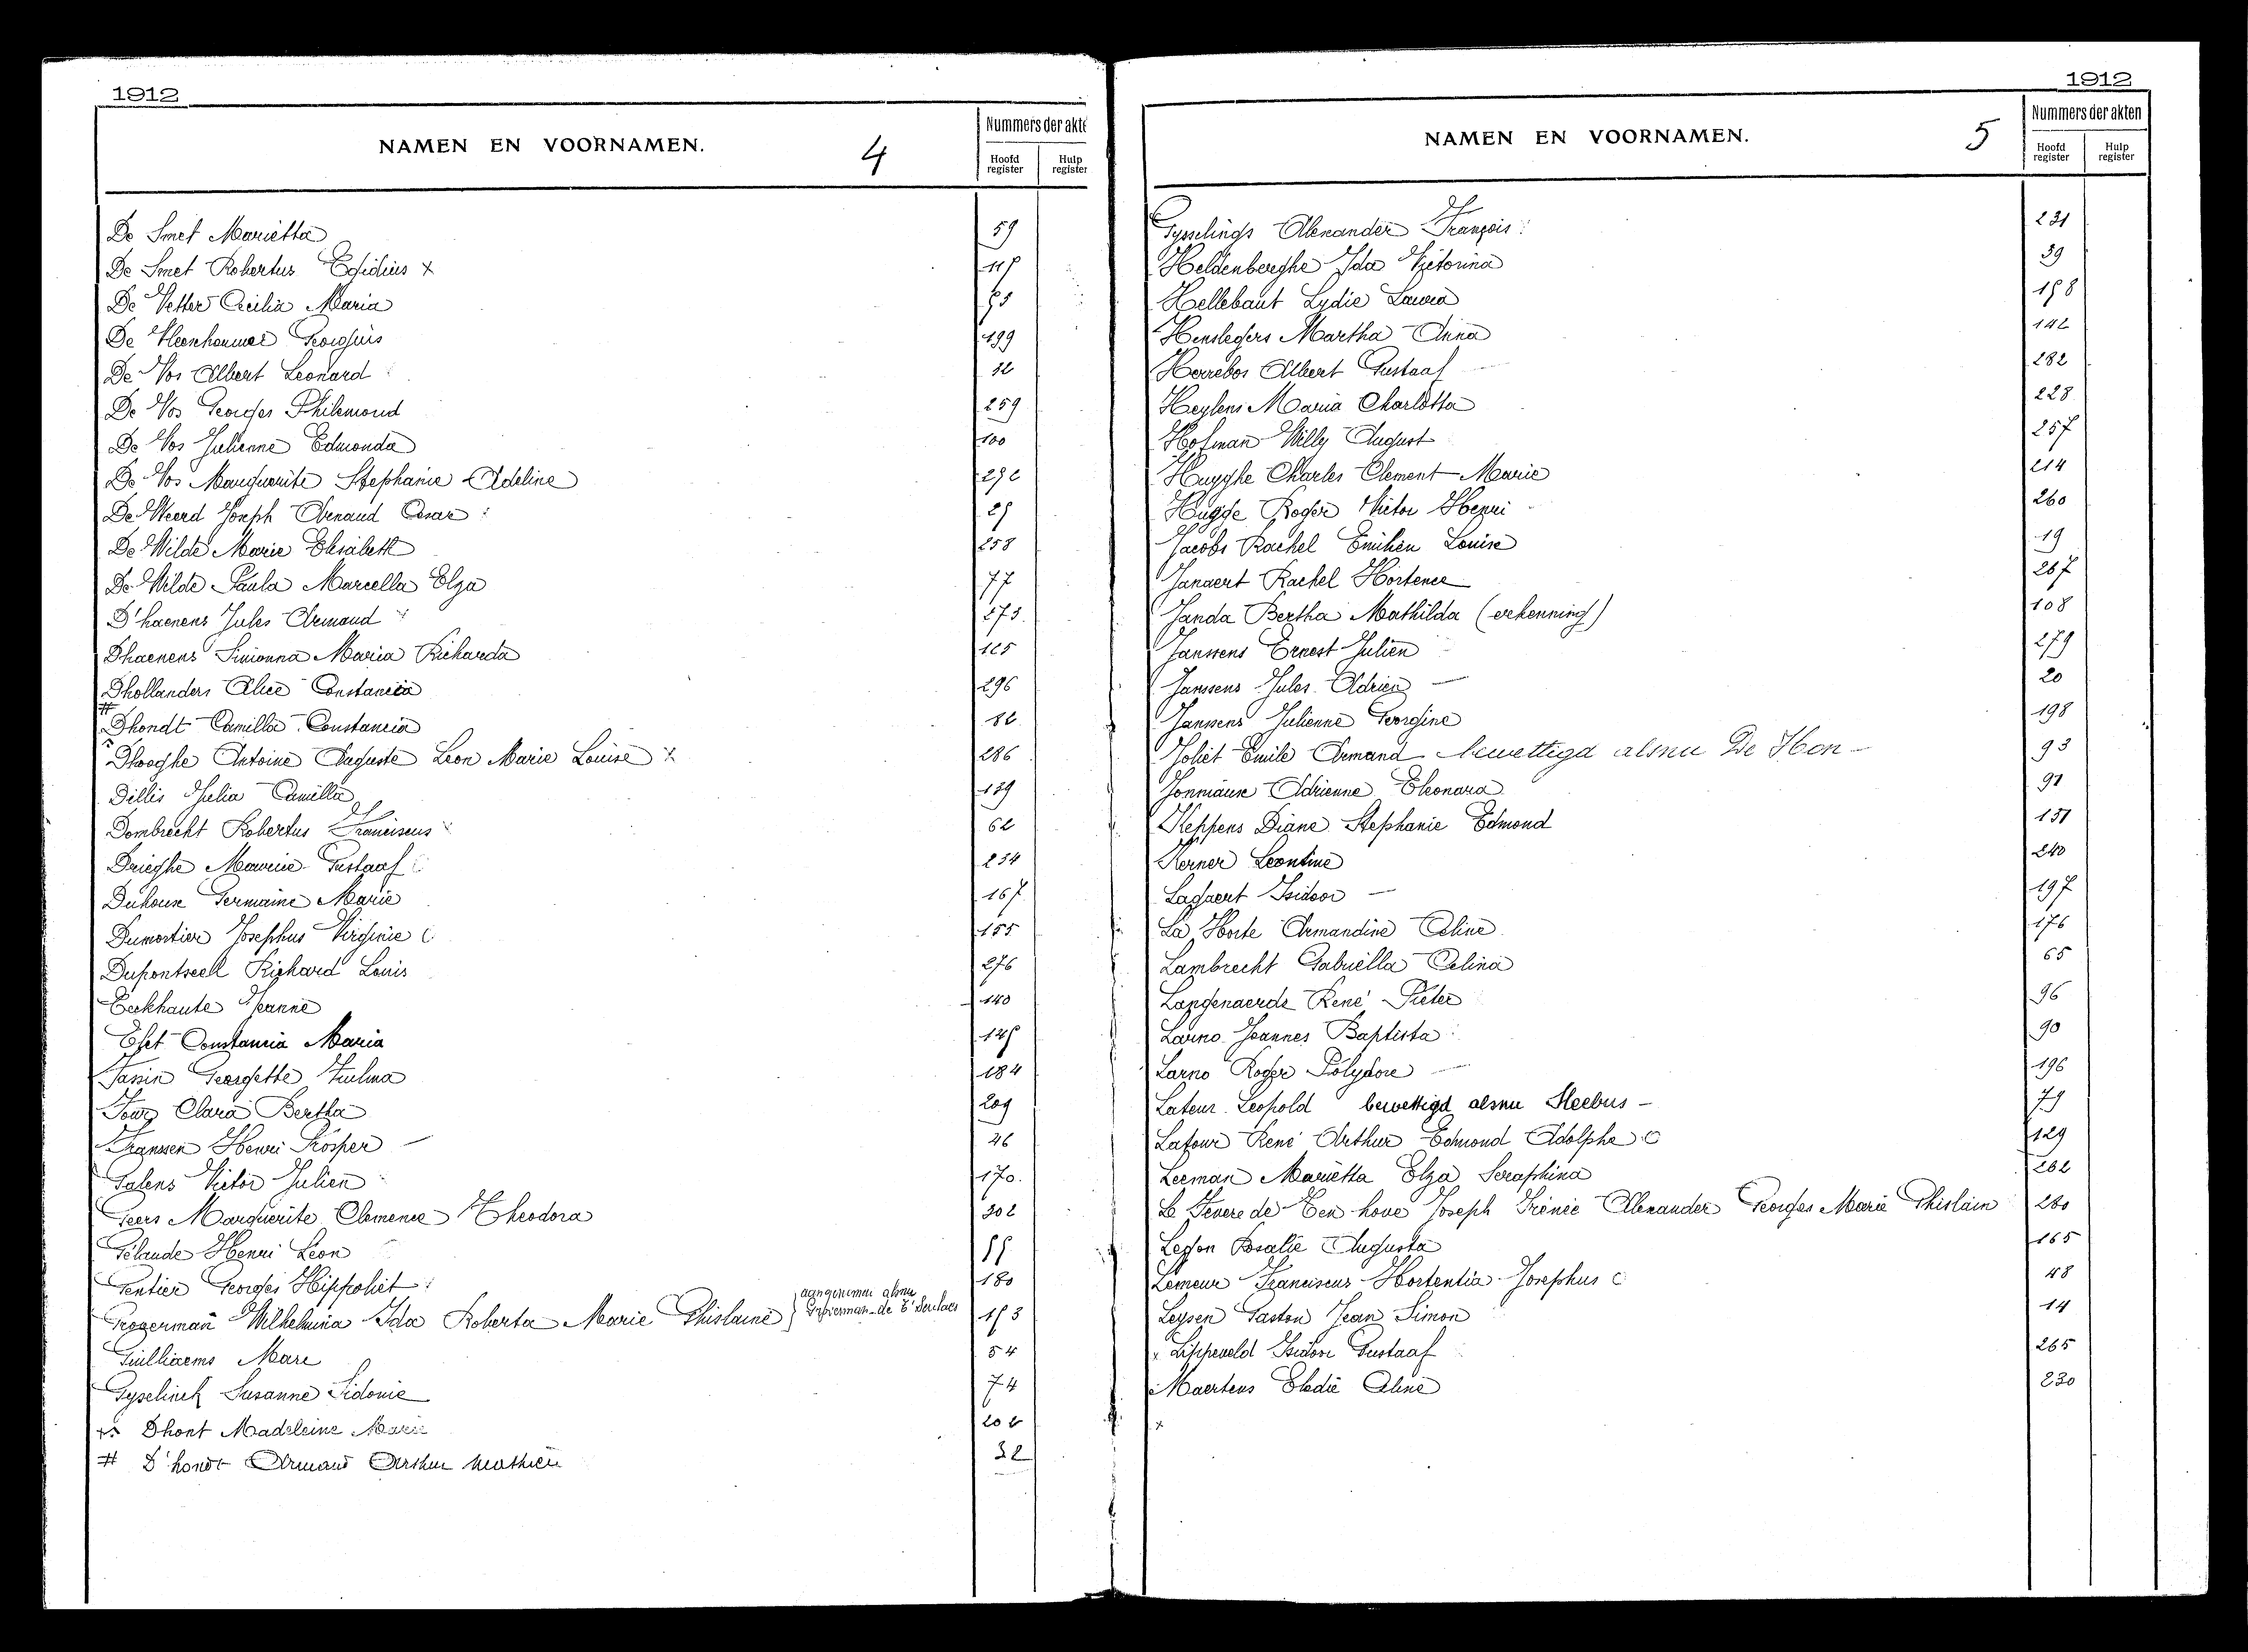 1912
NAMEN EN VOORNAMEN. 4
Nummers der akte
Hoofd register
Hulp register
De Smet Mariëtta 59
De Smet Robertus Egidius x 115
De Vetter Cecilia Maria
De Georgius 199
De Vos Albert Leonard 12
De Vos Georges Philemond 259
De Vos Julienne Edmonda 100
De Vos Marguerite Stephanie Adeline 292
De Weerd Joseph Arnaud Cesar 25
De Wilde Marie Elisabeth 258
De Wilde Paula Marcella Elza 77
D'haenens Jules Armand 273
Dhaenens Simonna Maria Richarda 125
Dhollanders Alice Constancia 296
# Dhondt Camilla Constancia 82
Dhooghe Antoine Auguste Leon Marie Louise 286
Dillis Julia Camilla 139
Dombrecht Robertus Franciscus 62
Drieghe Maurice Gustaaf 234
Duhoux Germaine Marie 167
Dumortier Josephus Virginie 155
Dupontseell Richard Louis 276
Eeckhaute Jeanne 140
Constancia Maria 145
Fassin Georgette Zulma 184
Clara Bertha 209
Franssen Henri Prosper 46
Galens Victor Julien 170.
Geers Marguerite Clemence Theodora 302
Gelaude Henri Leon 55
Gentier Georges Hippoliet 180
Grogerman Wilhelmina Ida Roberta Marie Ghislaine } aangenomen alsnu de T'Serclaes 153
Guilliaems Marc 54
Gyselinck Susanne Sidonie 74
Dhont Madeleine Marie 202
# D'hondt Armand Arthur Mathieu 32
1912
NAMEN EN VOORNAMEN. 5
Nummers der akten
Hoofd register
Hulp register
Gysselings Alexander François 231
Heldenberghe Ida Victorina 39
Hellebaut Lydie Laura 158
Henslegers Martha Anna 142
Herrebos Albert Gustaaf 282
Heylens Maria Charlotta 228
Hofman Willy August 257
Huyghe Charles Clement Marie 214
Hugge Roger Victor Henri 260
Jacobs Rachel Emilien Louise 19
Janaert Rachel Hortence 267
Janda Bertha Mathilda (erkenning) 108
Janssens Ernest Julien 279
Janssens Jules Adrien 20
Janssens Julienne Georgine 198
Joliet Emile Armand bewettigd alsnu De Hon - 93
Jonniaux Adrienne Eleonora 91
Keppens Diane Stephanie Edmond 151
Kerner Leontine 240
Lagaert Isidoor 197
La Horte Armandine Celine 176
Lambrecht Gabriella Celina 65
Langenaerde René Pieter 96
Larno Joannes Baptista 90
Larno Roger Polydore 196
Lateur Leopold bewettigd alsnu Sleebus - 79
Lafour René Arthur Edmond Adolphe 129
Leeman Mariëtta Elza Seraphina 262
Le Fevere de Ten hove Joseph Irénée Alexander Georges Marie Ghislain 280
Legon Rosalie Augusta 165
Lemeur Franciscus Hortentia Josephus 48
Leysen Gaston Jean Simon 14
x Lippeveld Isidore Gustaaf 265
Maertens Elodie Aline 230
x